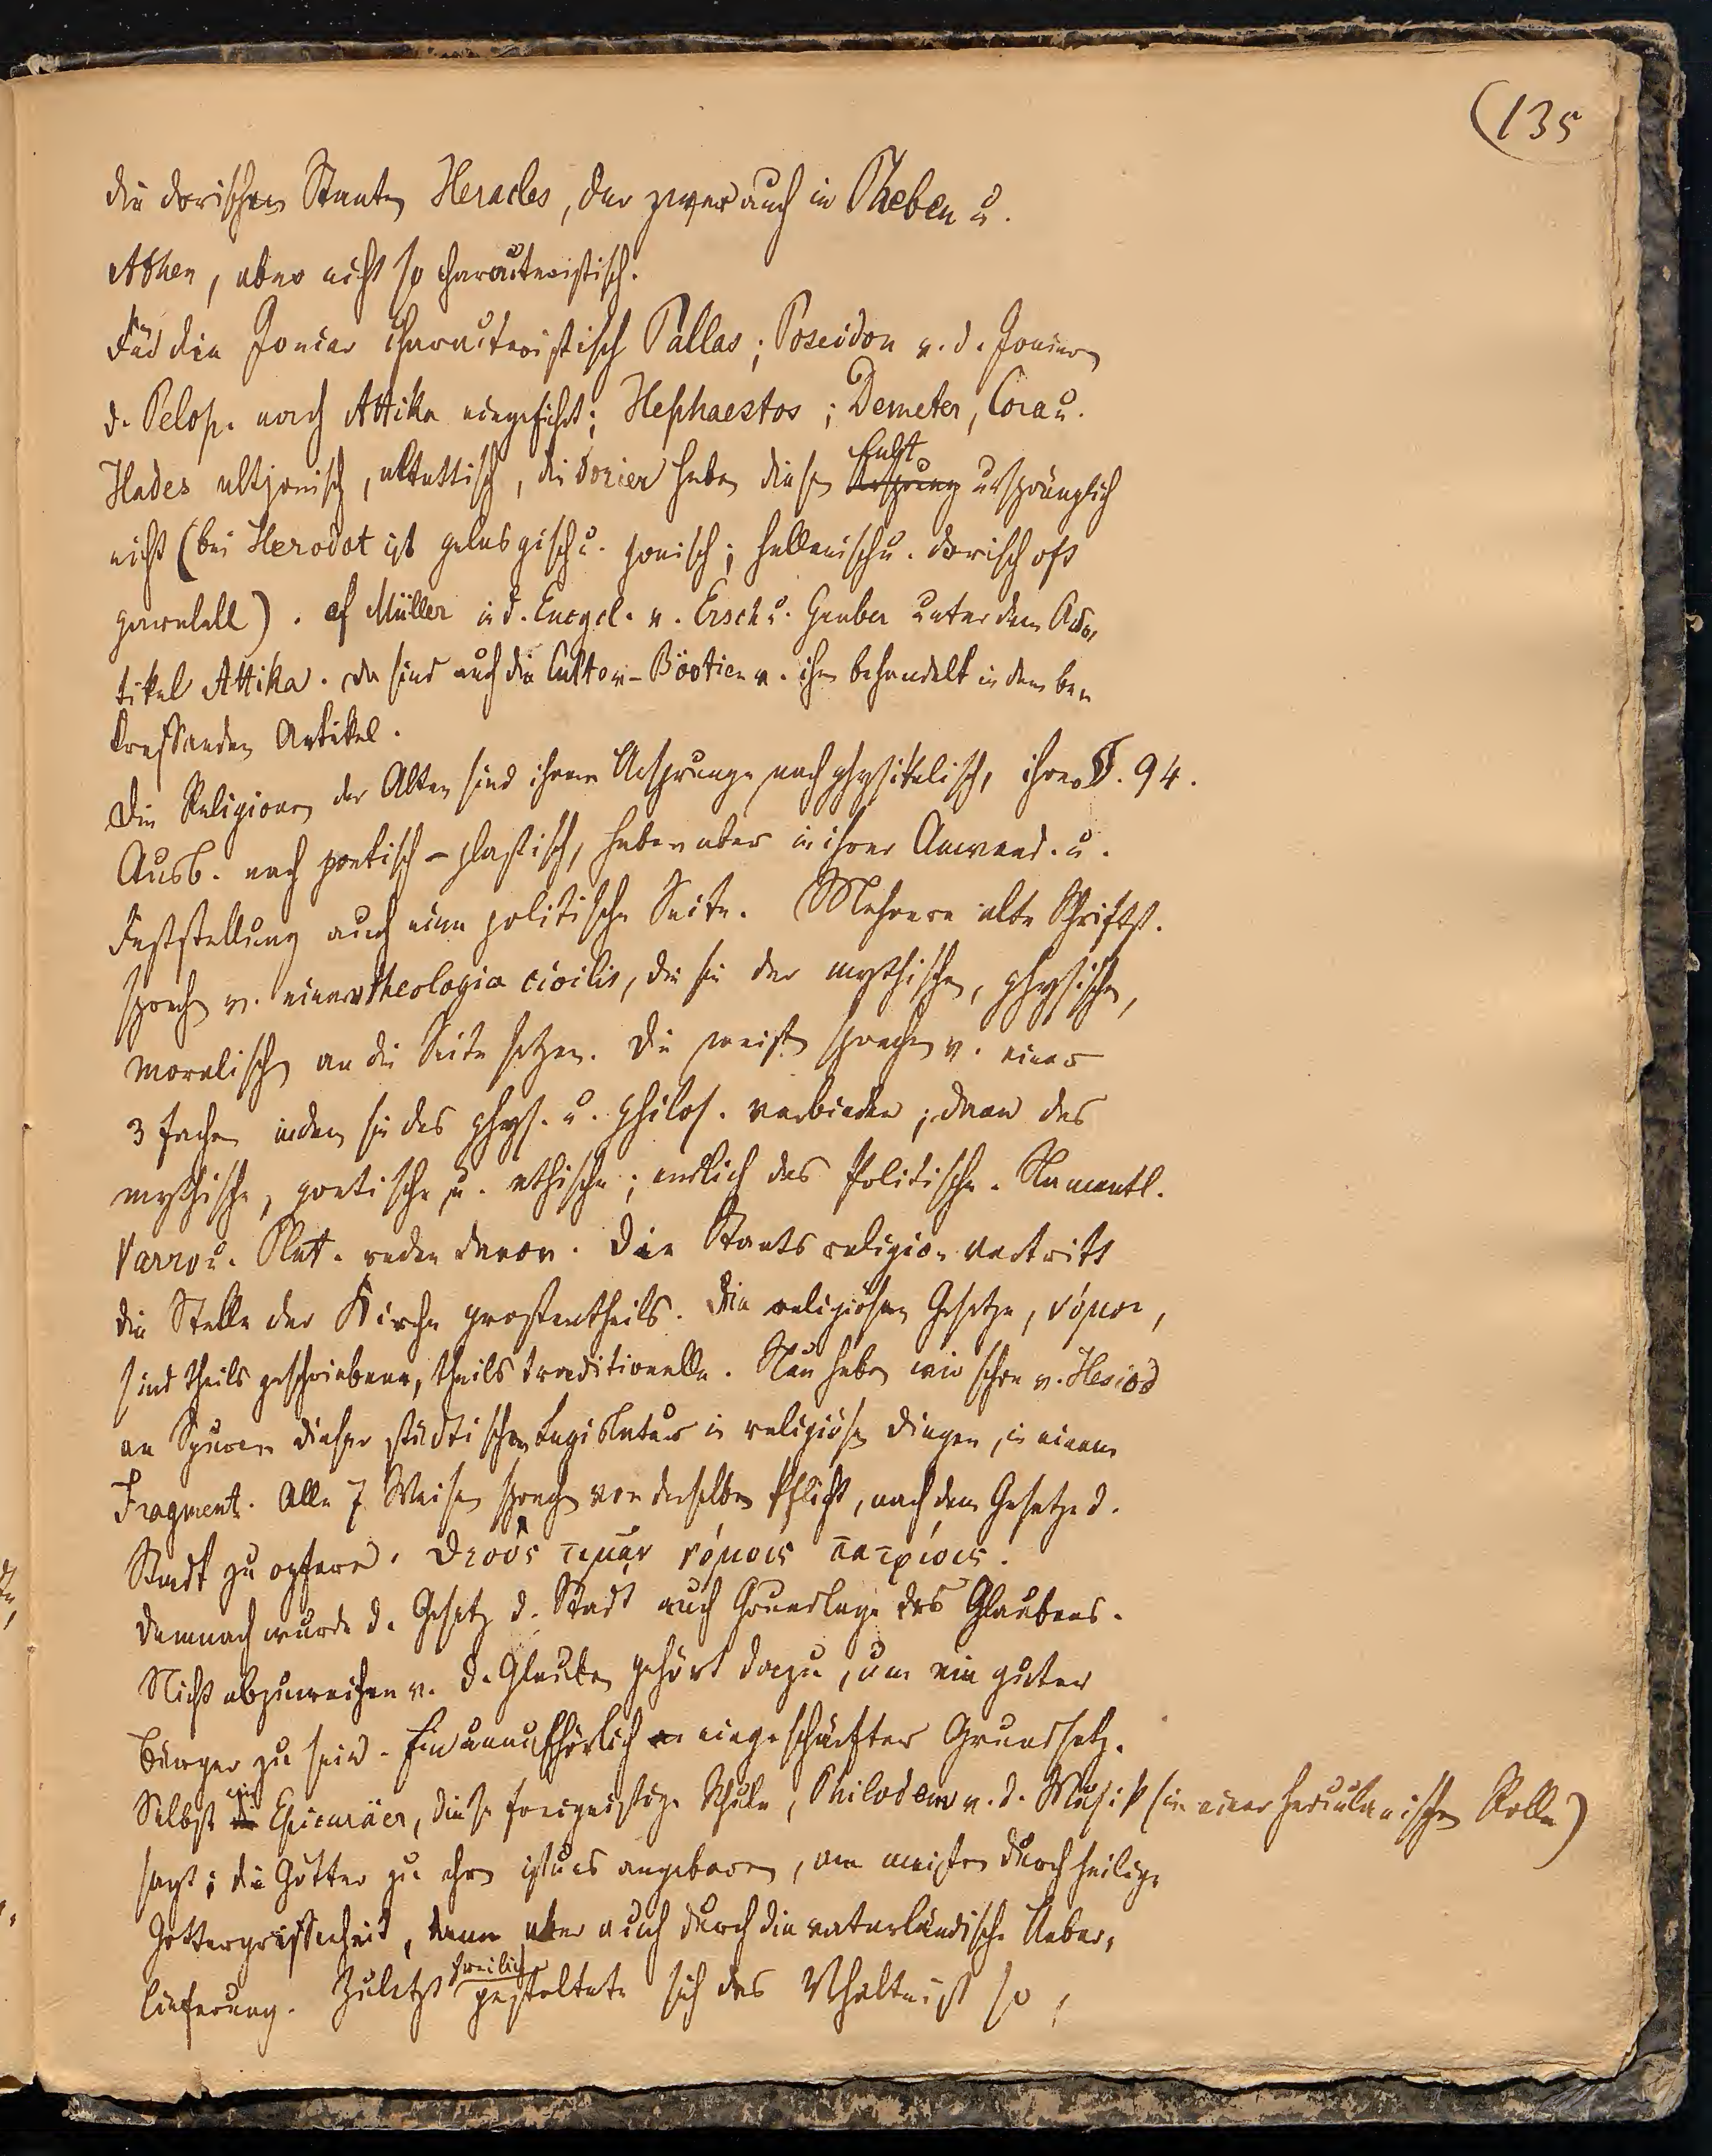 (135
die dorischen Staaten Heracles, der zwar auch in Theben u.
Athen, aber nicht so characteristisch.
Für die Jonier characteristisch Pallas; Poseidon v. d. Joniern
d. Pelop. nach Attika eingeführt; Hephaestos; Demeter, Cora u.
Hades altjonisch, altattisch, die Dorier haben diesen Cult ursprünglich
nicht (bei Herodot ist pelasgisch u. jonisch; hellenisch u. dorisch oft
parallel). cf Müller in d. Encycl. v. Ersch u. Gruber unter dem Ar-
tikel Attika. Da sind auch die Culte v. Böotien v. ihm behandelt in dem be-
treffenden Artikel.
Die Religionen der Alten sind ihrem Ursprunge nach physikalisch, ihrer §. 94.
Ausb. nach poetisch-plastisch, haben aber in ihrer Anwend. u.
Feststellung auch eine politische Seite. Mehrere alte Schriftst.
sprechen v. einer theologia civilis, die sie der mythischen, physischen,
moralischen an die Seite setzen. Die meisten sprechen v. einer
3 fachen indem sie das phys. u. philos. verbinden; dann das
mythische, poetische u. ethische; endlich das Politische. Namentl.
Varro u. Plut. reden davon. Die Staatsreligion vertritt
die Stelle der Kirche grostentheils. Die religiösen Gesetze, νόμοι,
sind theils geschriebene, theils traditionelle. Nun haben wir schon v. Hesiod
an Spuren dieser städtischen Legislatur in religiösen Dingen, in einem
Fragment. Alle 7 Weisen sprechen von derselben Pflicht, nach dem Gesetze d.
Stadt zu opfern. θεοὺς τιμᾷν νόμοις πατρίοις.
Demnach wurde d. Gesetz d. Stadt auch Grundlage des Glaubens.
Nicht abzuweichen v. d. Glauben gehört dazu, um ein guter
Bürger zu sein. Ein unaufhörlich eingeschärfter Grundsatz.
Selbst ein Epicuräer, diese freigeistige Schule, Philodem v. d. Musik (in einer herculanischen Rolle)
sagt; die Götter zu ehren ist uns angeboren, am meisten durch heilige
Gottergriffenheit, dann aber auch durch die vaterländische Ueber-
lieferung. Zuletzt freilich gestaltete sich das Vhältnist so,